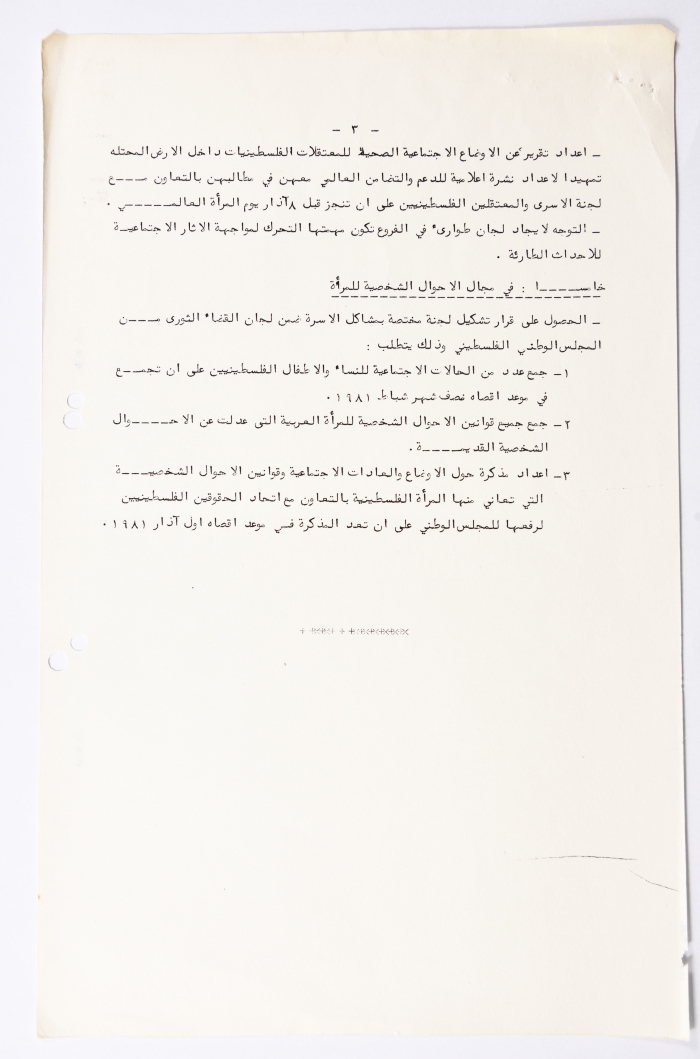 - ٣ -
- اعداد تقرير عن الاوضاع الاجتماعية الصحية للمعتقلات الفلسطينيات داخل الارض المحتله
تمهيدا لاعداد نشرة اعلامية للدعم والتضامن العالمي معهن في مطالبهن بالتعاون مـــع
لجنة الاسرى والمعتقلين الفلسطينيين على ان تنجز قبل ٨ آذار يوم المرأة العالمـــــي .
- التوجه لايجاد لجان طوارىء في الفروع تكون مهمتها التحرك لمواجهة الاثار الاجتماعيــة
للاحداث الطارئة .
خامســــا : في مجال الاحوال الشخصية للمرأة
- الحصول على قرار تشكيل لجنة مختصة بمشاكل الاسرة ضمن لجان القضاء الثورى مـــن
المجلس الوطني الفلسطيني وذلك يتطلب :
١- جمع عدد من الحالات الاجتماعية للنساء والاطفال الفلسطينيين على ان تجمــع
في موعد اقصاه نصف شهر شباط ١٩٨١ .
٢- جمع جميع قوانين الاحوال الشخصية للمرأة العربية التى عدلت عن الاحـــوال
الشخصية القديمــــة .
٣- اعداد مذكرة حول الاوضاع والعادات الاجتماعية وقوانين الاحوال الشخصيـــة
التي تعاني منها المرأة الفلسطينية بالتعاون مع اتحاد الحقوقين الفلسطينيين
لرفعها للمجلس الوطني على ان تعد المذكرة فـي موعد اقصاه اول آذار ١٩٨١ .